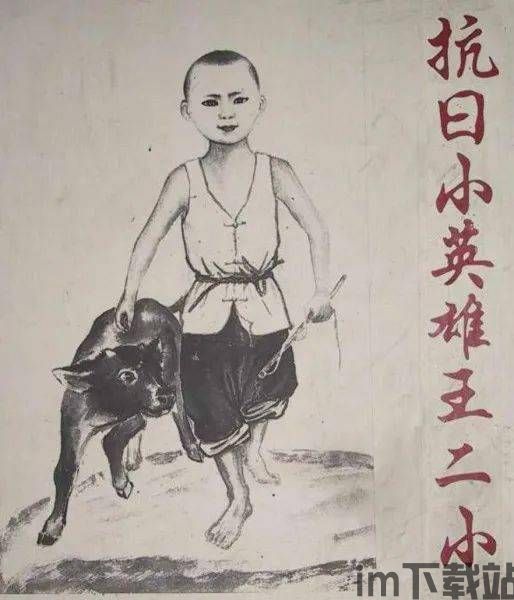 抗日小英雄王二小
im下载站